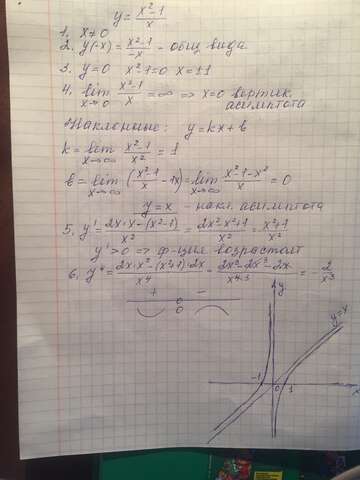 y = x²-1/x
1. x≠0
2. y(-x) = x²-1/-x - общ вида.
3. y=0 x²-1=0 x=±1
4. lim x→0 x²-1/x = ∞ => x=0 вертик.
асимптота
Наклонные: y=kx+b
k = lim x→∞ x²-1/x² = 1
b = lim x→∞ (x²-1/x - 1x) = lim x→∞ x²-1-x²/x = 0
y=x - накл. асимптота
5. y' = 2x·x-(x²-1)/x² = 2x²-x²+1/x² = x²+1/x²
y'>0 => ф-ция возрастает
6. y" = 2x·x²-(x²+1)·2x/x⁴ = 2x³-2x³-2x/x⁴·³ = -2/x³
+ 0 -
0
y
y=x
-1 0 1 x